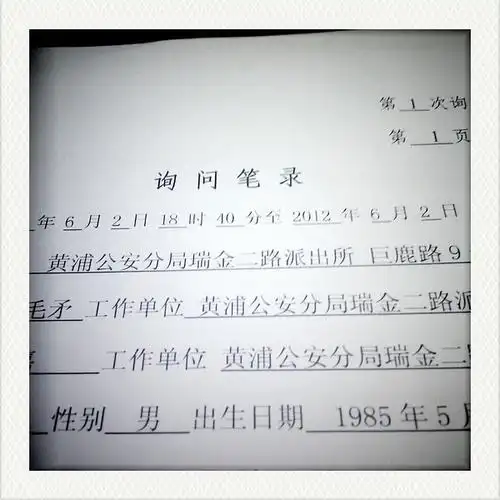 第 1 次询
第 1 页
询问笔录
年 6 月 2 日 18 时 40 分至 2012 年 6 月 2 日
黄浦公安分局瑞金二路派出所 巨鹿路9
毛矛 工作单位 黄浦公安分局瑞金二路派
工作单位 黄浦公安分局瑞金二
性别 男 出生日期 1985年5月